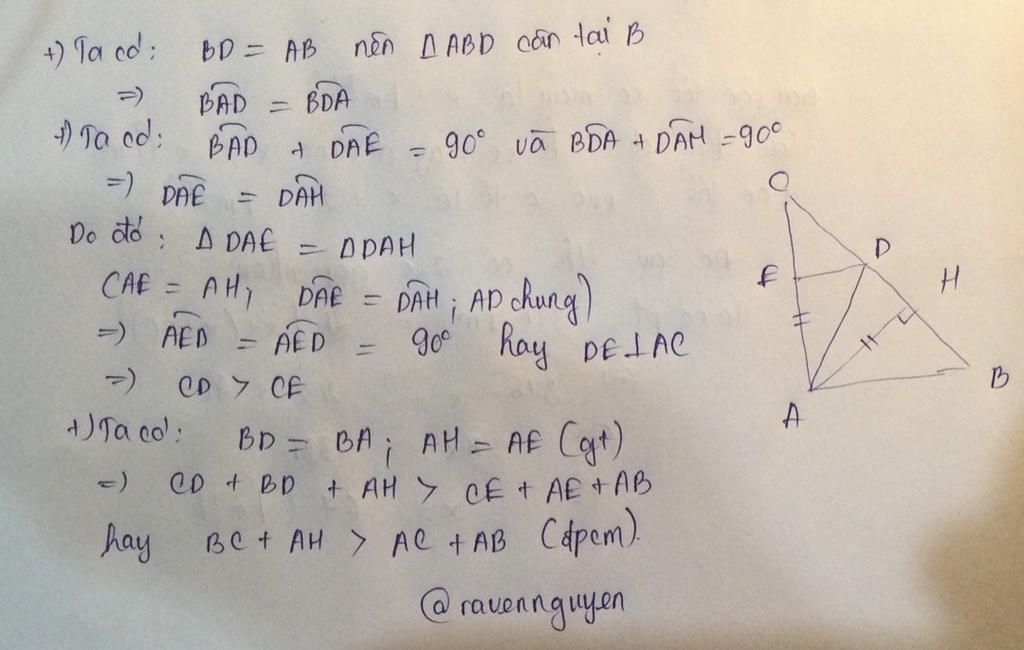 +) Ta có: BD = AB nên ΔABD cân tại B
=) BAD = BDA
+) Ta có: BAD + DAE = 90° và BDA + DAH = 90°
=) DAE = DAH
Do đó: Δ DAE = ΔDAH
CAE = AH; DAE = DAH; AD chung)
=) AED = AED = 90° hay DE⊥AC
=) CD > CE
+) Ta có: BD = BA; AH = AE (gt)
=) CD + BD + AH > CE + AE + AB
hay BC + AH > AC + AB (đpcm).
@ravennguyen
C
D
E
H
B
A